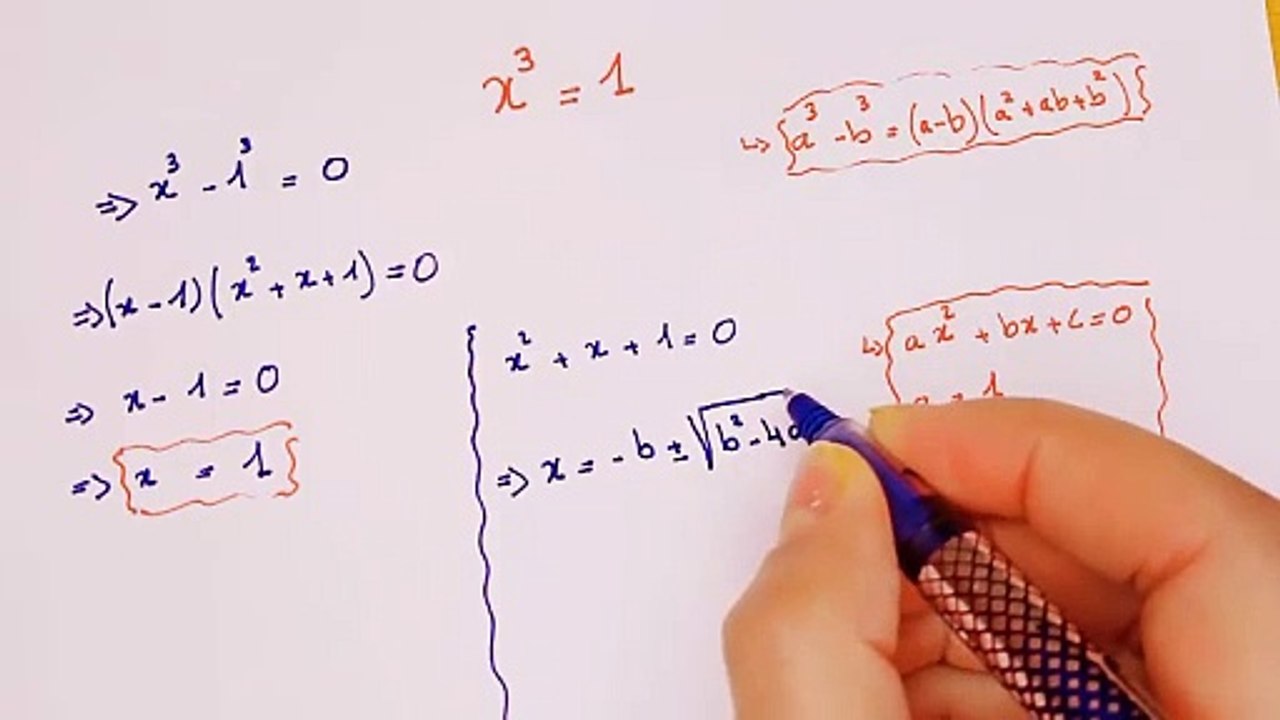 x³ = 1
↳ a³ - b³ = (a-b)(a² + ab + b²)
⇒ x³ - 1³ = 0
⇒ (x - 1)(x² + x + 1) = 0
⇒ x - 1 = 0
⇒ x = 1
x² + x + 1 = 0
⇒ x = - b ± √b² - 4a
↳ ax² + bx + c = 0
a = 1